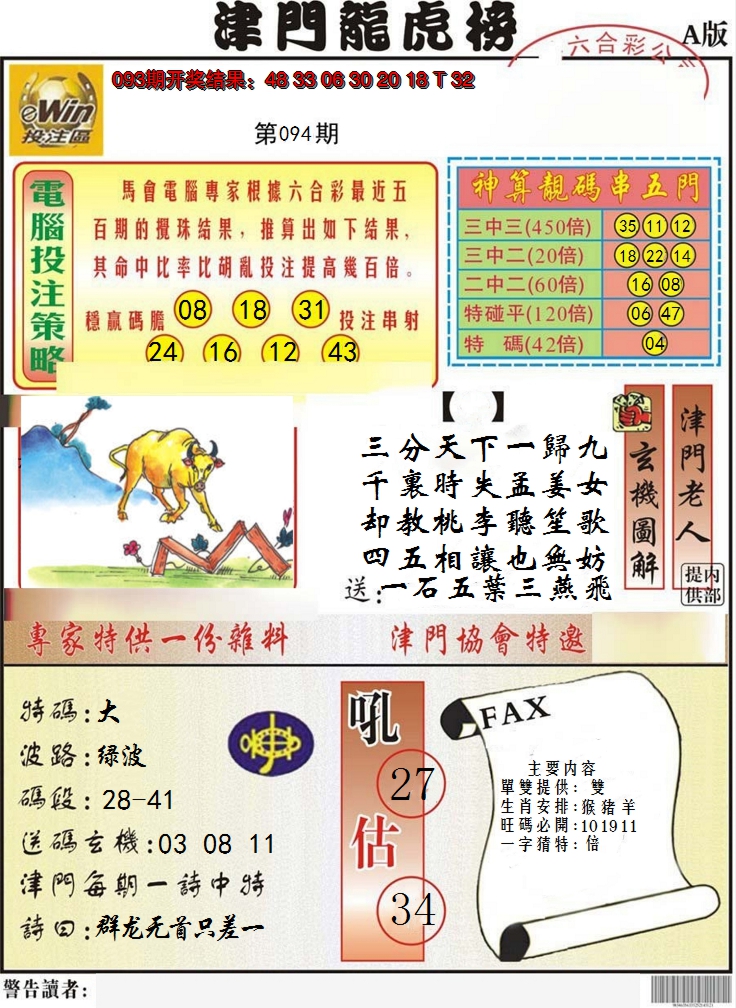 津門龍虎榜
A版
六合彩公
eWin
投注區
093期开奖结果：48 33 06 30 20 18 T 32
第094期
電腦投注策略
馬會電腦專家根據六合彩最近五
百期的攪珠结果，推算出如下结果，
其命中比率比胡亂投注提高幾百倍。
穩赢碼膽 08 18 31 投注串射
24 16 12 43
神算靚碼串五門
三中三(450倍) 35 11 12
三中二(20倍) 18 22 14
二中二(60倍) 16 08
特碰平(120倍) 06 47
特 碼(42倍) 04
【 】
三分天下一歸九
千裏時失孟姜女
却教桃李聽笙歌
四五相讓也無妨
送:一石五葉三燕飛
玄機圖解
津門老人
内部提供
專家特供一份雜料
津門協會特邀
特碼:大
波路:绿波
碼段:28-41
送碼玄機:03 08 11
津門每期一詩中特
詩曰:群龙无首只差一
吼
27
估
34
FAX
主要内容
單雙提供：雙
生肖安排:猴猪羊
旺碼必開:101911
一字猜特:倍
警告讀者: